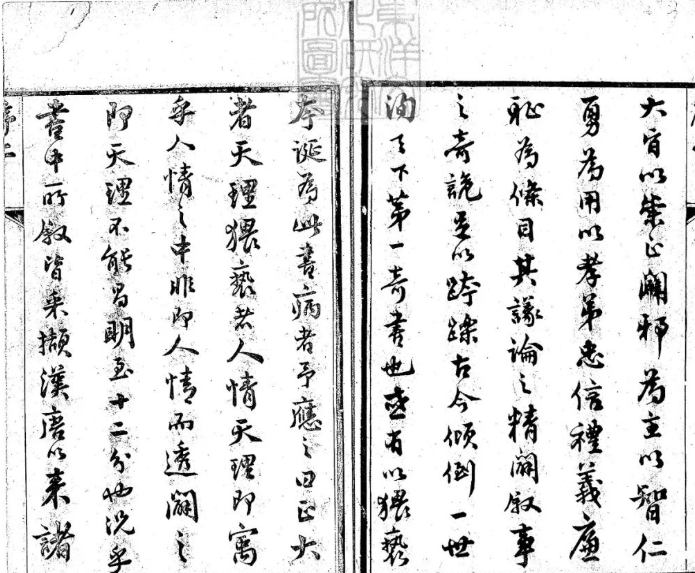 大旨以崇正闢邪為主以智仁
勇為用以孝弟忠信禮義廉
恥為條目其議論之精闢叙事
之奇詭足以跨躒古今傾倒一世
洵天下第一奇書也或有以猥褻
夸誕為此書病者予應之曰正大
者天理猥褻者人情天理即寓
乎人情之中非即人情而透闢之
即天理不能昌明至十二分也況乎
書中所叙皆采擷漢唐以來諸
序二